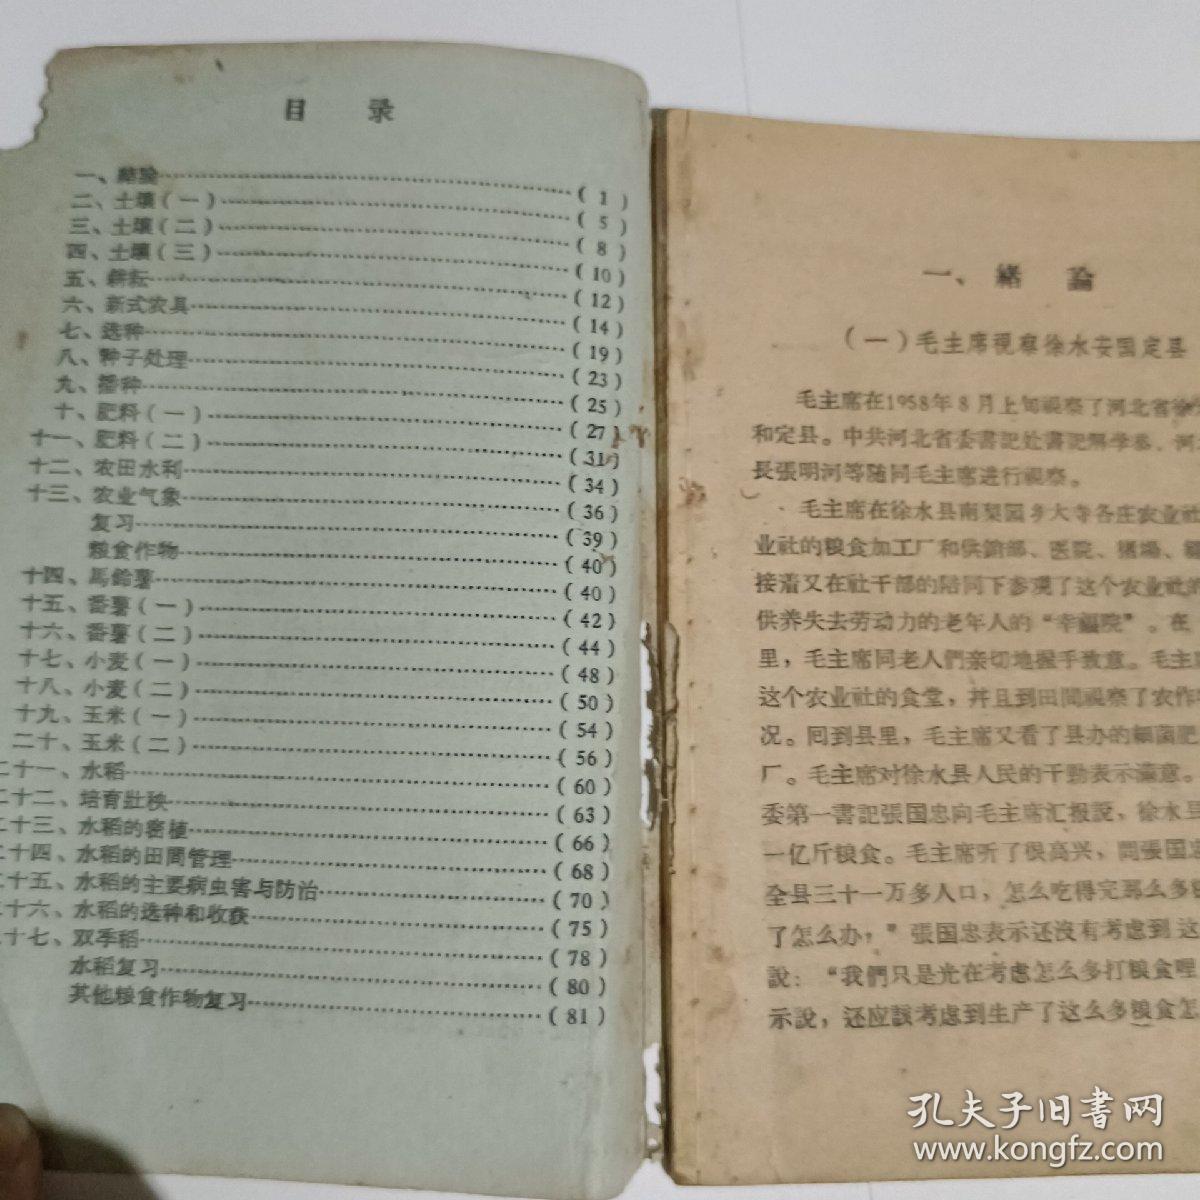 目 录
一、緒論……(1)
二、土壤(一)……(5)
三、土壤(二)……(8)
四、土壤(三)……(10)
五、耕耘……(12)
六、新式农具……(14)
七、选种……(19)
八、种子处理……(23)
九、播种……(25)
十、肥料(一)……(27)
十一、肥料(二)……(31)
十二、农田水利……(34)
十三、农业气象……(36)
复习……(39)
粮食作物……(40)
十四、馬鈴薯……(40)
十五、番薯(一)……(42)
十六、番薯(二)……(44)
十七、小麦(一)……(48)
十八、小麦(二)……(50)
十九、玉米(一)……(54)
二十、玉米(二)……(56)
二十一、水稻……(60)
二十二、培育壯秧……(63)
二十三、水稻的密植……(66)
二十四、水稻的田間管理……(68)
二十五、水稻的主要病虫害与防治……(70)
二十六、水稻的选种和收获……(75)
二十七、双季稻……(78)
水稻复习……(80)
其他粮食作物复习……(81)
一、緒論
(一)毛主席視察徐水安国定县
毛主席在1958年8月上旬視察了河北省徐
和定县。中共河北省委書記处書記解学恭、河
長張明河等随同毛主席进行視察。
毛主席在徐水县南梨园乡大寺各庄农业社
业社的粮食加工厂和供銷部、医院、猪場、
接着又在社干部的陪同下参观了这个农业社的
供养失去劳动力的老年人的“幸福院”。在
里，毛主席同老人們亲切地握手致意。毛主席
这个农业社的食堂，并且到田間視察了农作
况。回到县里，毛主席又看了县办的細菌肥
厂。毛主席对徐水县人民的干勁表示滿意。
委第一書記張国忠向毛主席汇报說，徐水县
一亿斤粮食。毛主席听了很高兴，問張国忠
全县三十一万多人口，怎么吃得完那么多
了怎么办？”張国忠表示还沒有考虑到这
說：“我們只是光在考虑怎么多打粮食哩
示說，还应該考虑到生产了这么多粮食怎
孔夫子旧书网
www.kongfz.com